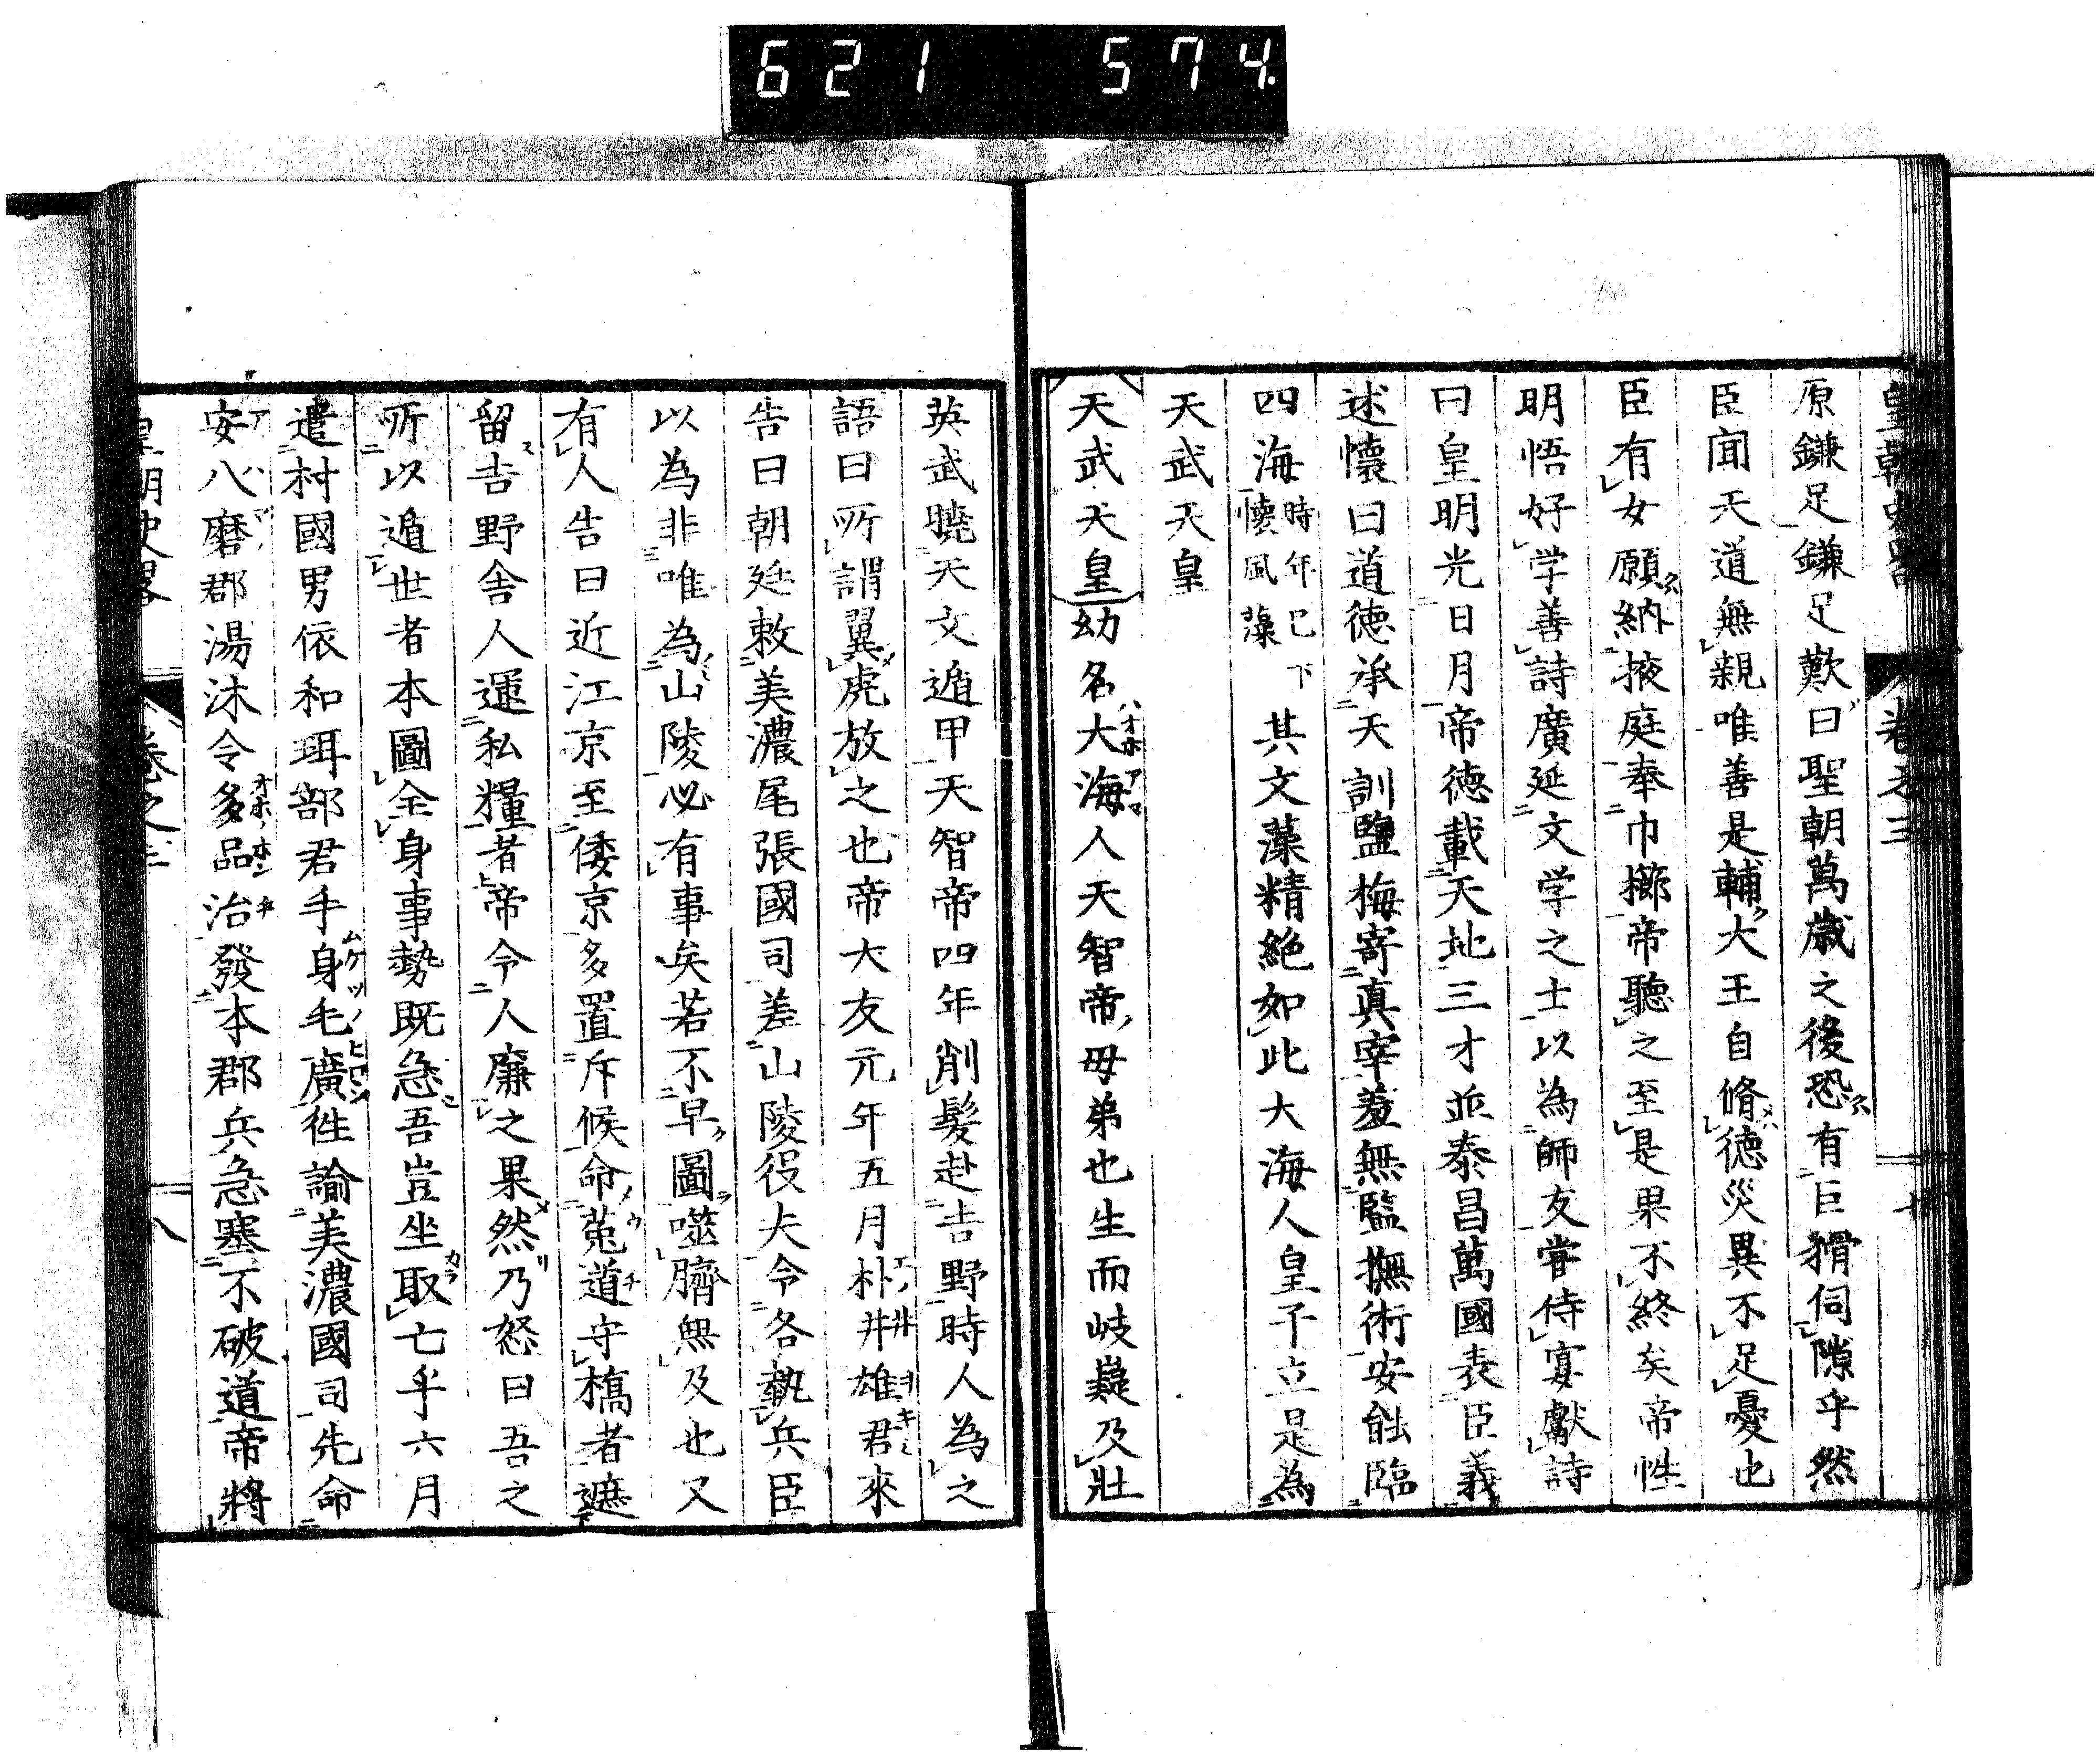 621 574
皇朝史畧 卷之三 七
原鎌足鎌足歎曰聖朝萬歳之後恐有巨猾伺隙乎然
臣聞天道無親唯善是輔大王自脩徳災異不足憂也
臣有女願納掖庭奉巾櫛帝聽之至是果不終矣帝性
明悟好学善詩廣延文学之士以為師友甞侍宴獻詩
曰皇明光日月帝徳載天地三才並泰昌萬國表臣義
述懷曰道徳承天訓鹽梅寄真宰羞無監撫術安能臨
四海時年已下懷風藻其文藻精絶如此大海人皇子立是為
天武天皇
天武天皇幼名大海人天智帝母弟也生而岐嶷及壯
英武曉天文遁甲天智帝四年削髮赴吉野時人為之
語曰所謂翼虎放之也帝大友元年五月朴井雄君來
告曰朝廷敕美濃尾張國司差山陵役夫令各執兵臣
以為非唯為山陵必有事矣若不早圖噬臍無及也又
有人告曰近江京至倭京多置斥候命菟道守橋者遮
留吉野舎人運私糧者帝令人廉之果然乃怒曰吾之
所以遁世者本圖全身事勢既急吾豈坐取亡乎六月
遣村國男依和珥部君手身毛廣徃諭美濃國司先命
安八磨郡湯沐令多品治發本郡兵急塞不破道帝將
皇朝史畧 卷之三 八